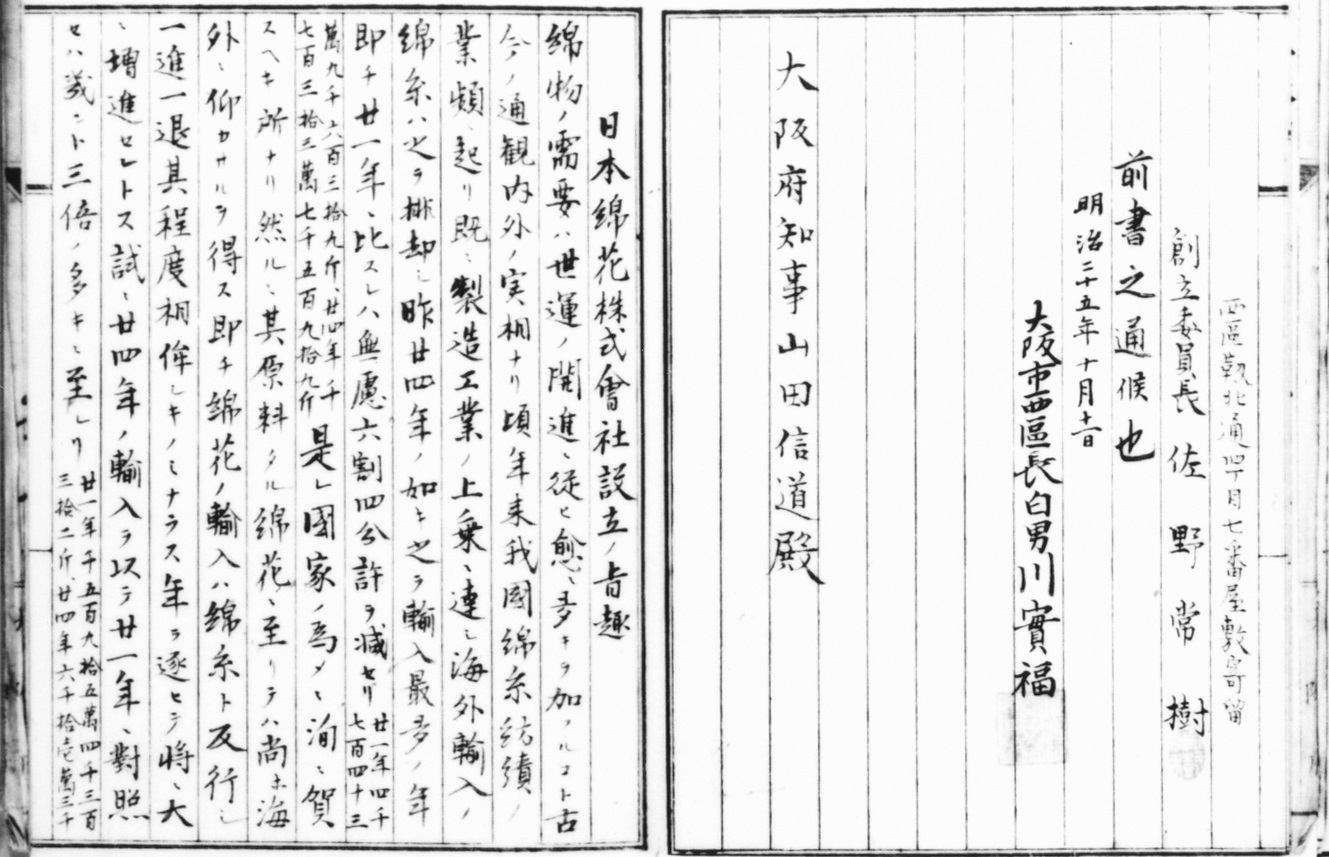 西區靱北通四丁目七番屋敷寄留
創立委員長 佐野常樹
前書之通候也
明治二十五年十月十一日
大阪市西區長白男川實福
大阪府知事山田信道殿
日本綿花株式會社設立ノ旨趣
綿物ノ需要ハ世運ノ開進ニ従ヒ愈ニ多キヲ加ノルコト古
今ノ通観内外ノ実相ナリ頃年来我國綿糸紡績ノ
業頻ニ起リ既ニ製造工業ノ上乗ニ連シ海外輸入ノ
綿糸ハ之ヲ排却シ昨廿四年ノ如キ之ヲ輸入最多ノ年
即チ廿一年ニ比スレハ無慮六割四分許ヲ減セリ廿一年四千七百四十三
萬九千六百三拾九斤廿四年千七百三拾三萬七千五百九拾九斤是レ國家ノ為メニ洵ニ賀
スヘキ所ナリ然ルニ其原料タル綿花ニ至リテハ尚ホ海
外ニ仰カサルヲ得ス即チ綿花ノ輸入ハ綿糸ト反行シ
一進一退其程度相侔シキノミナラス年ヲ逐ヒテ將ニ大
ニ増進セントス試ニ廿四年ノ輸入ヲ以テ廿一年ニ對照
セハ幾ント三倍ノ多キニ至レリ廿一年千五百九拾五萬四千三百三拾二斤廿四年六千拾壱萬三千